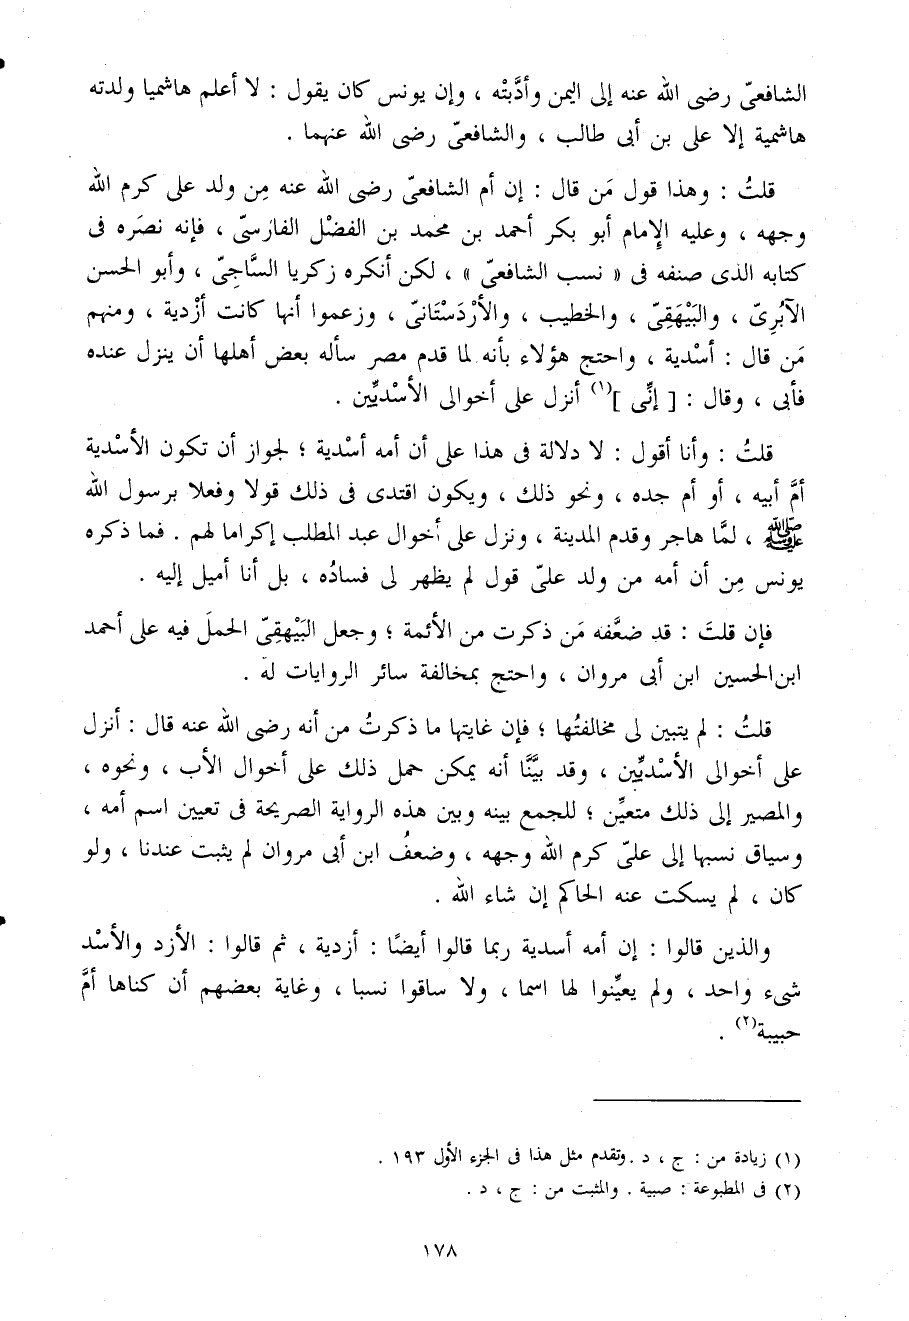 الشافعىّ رضى الله عنه إلى اليمن وأدَّبتْه ، وإن يونس كان يقول : لا أعلم هاشميا ولدته
هاشمية إلا على بن أبى طالب ، والشافعىّ رضى الله عنهما .
قلتُ : وهذا قول مَن قال : إن أم الشافعىّ رضى الله عنه مِن ولد على كرم الله
وجهه ، وعليه الإمام أبو بكر أحمد بن محمد بن الفضْل الفارسىّ ، فإنه نصَره فى
كتابه الذى صنفه فى « نسب الشافعىّ » ، لكن أنكره زكريا السَّاجِىّ ، وأبو الحسن
الآبُرِىّ ، والبَيْهَقِىّ ، والخطيب ، والأرْدَسْتانىّ ، وزعموا أنها كانت أزْدية ، ومنهم
مَن قال : أسْدية ، واحتج هؤلاء بأنه لما قدم مصر سأله بعض أهلها أن ينزل عنده
فأبى ، وقال : [ إنِّى ](١) أنزل على أخوالى الأسْديِّين .
قلتُ : وأنا أقول : لا دلالة فى هذا على أن أمه أسْدية ؛ لجواز أن تكون الأسْدية
أمَّ أبيه ، أو أم جده ، ونحو ذلك ، ويكون اقتدى فى ذلك قولا وفعلا برسول الله
ﷺ ، لمَّا هاجر وقدم المدينة ، ونزل على أخوال عبد المطلب إكراما لهم . فما ذكره
يونس مِن أن أمه من ولد علىّ قول لم يظهر لى فسادُه ، بل أنا أميل إليه .
فإن قلتَ : قد ضعَّفه مَن ذكرت من الأئمة ؛ وجعل البَيْهقِىّ الحملَ فيه على أحمد
ابن الحسين ابن أبى مروان ، واحتج بمخالفة سائر الروايات له .
قلتُ : لم يتبين لى مخالفتُها ؛ فإن غايتها ما ذكرتُ من أنه رضى الله عنه قال : أنزل
على أخوالى الأسْديِّين ، وقد بيَّنَّا أنه يمكن حمل ذلك على أخوال الأب ، ونحوه ،
والمصير إلى ذلك متعيِّن ؛ للجمع بينه وبين هذه الرواية الصريحة فى تعيين اسم أمه ،
وسياق نسبها إلى علىّ كرم الله وجهه ، وضعفُ ابن أبى مروان لم يثبت عندنا ، ولو
كان ، لم يسكت عنه الحاكم إن شاء الله .
والذين قالوا : إن أمه أسدية ربما قالوا أيضًا : أزدية ، ثم قالوا : الأزد والأسْد
شىء واحد ، ولم يعيِّنوا لها اسما ، ولا ساقوا نسبا ، وغاية بعضهم أن كناها أمَّ
حبيبة(٢) .
(١) زيادة من : ج ، د . وتقدم مثل هذا فى الجزء الأول ١٩٣ .
(٢) فى المطبوعة : صبية . والمثبت من : ج ، د .
١٧٨